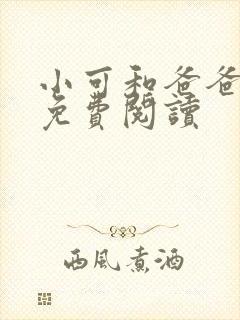 小可和爸爸
免費閱讀
西風煮酒